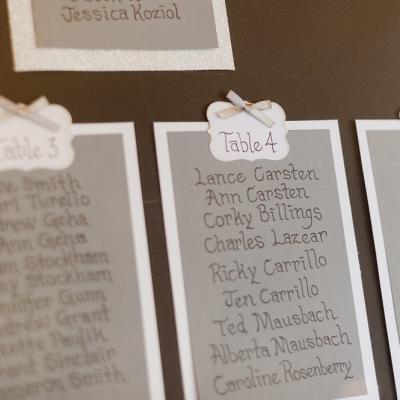 Jessica Koziol
Table 3
Smith
Turello
Andrew Geha
Ann Geha
Stockham
Stockham
Jennifer Gunn
Andrew Grant
Paulik
Grant Sinclair
Cameron Smith
Table 4
Lance Carsten
Ann Carsten
Corky Billings
Charles Lazear
Ricky Carrillo
Jen Carrillo
Ted Mausbach
Alberta Mausbach
Caroline Rosenberry